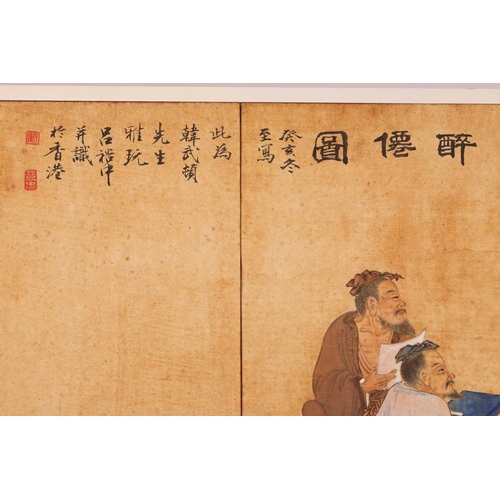 醉僊圖
癸亥冬
至寫
此為
韓武頓
先生
雅玩
呂裕中
并識
於香港